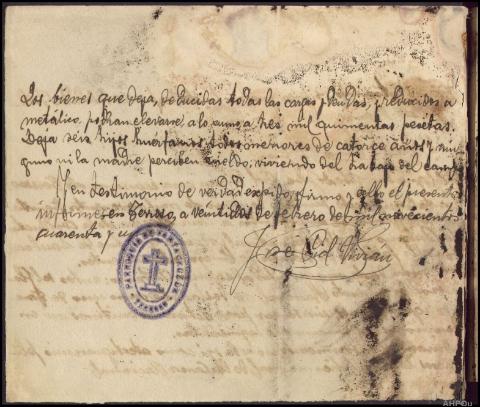 Los bienes que deja, deducidas todas las cargas y deudas, y reducidos a
metálico, podran elevarse a lo sumo a tres mil quinientas pesetas.
Deja seis hijos huerfanos todos menores de catorce años y nin-
guno ni la madre perciben sueldo, viviendo del trabajo del campo.
Y en testimonio de verdad expido, firmo y sello el presente
informe en Terroso, a veintidos de febrero de mil novecientos
cuarenta y u
José Cid
PARROQUIA DE SANTA CRUZ DE
TERROSO
AHPOu